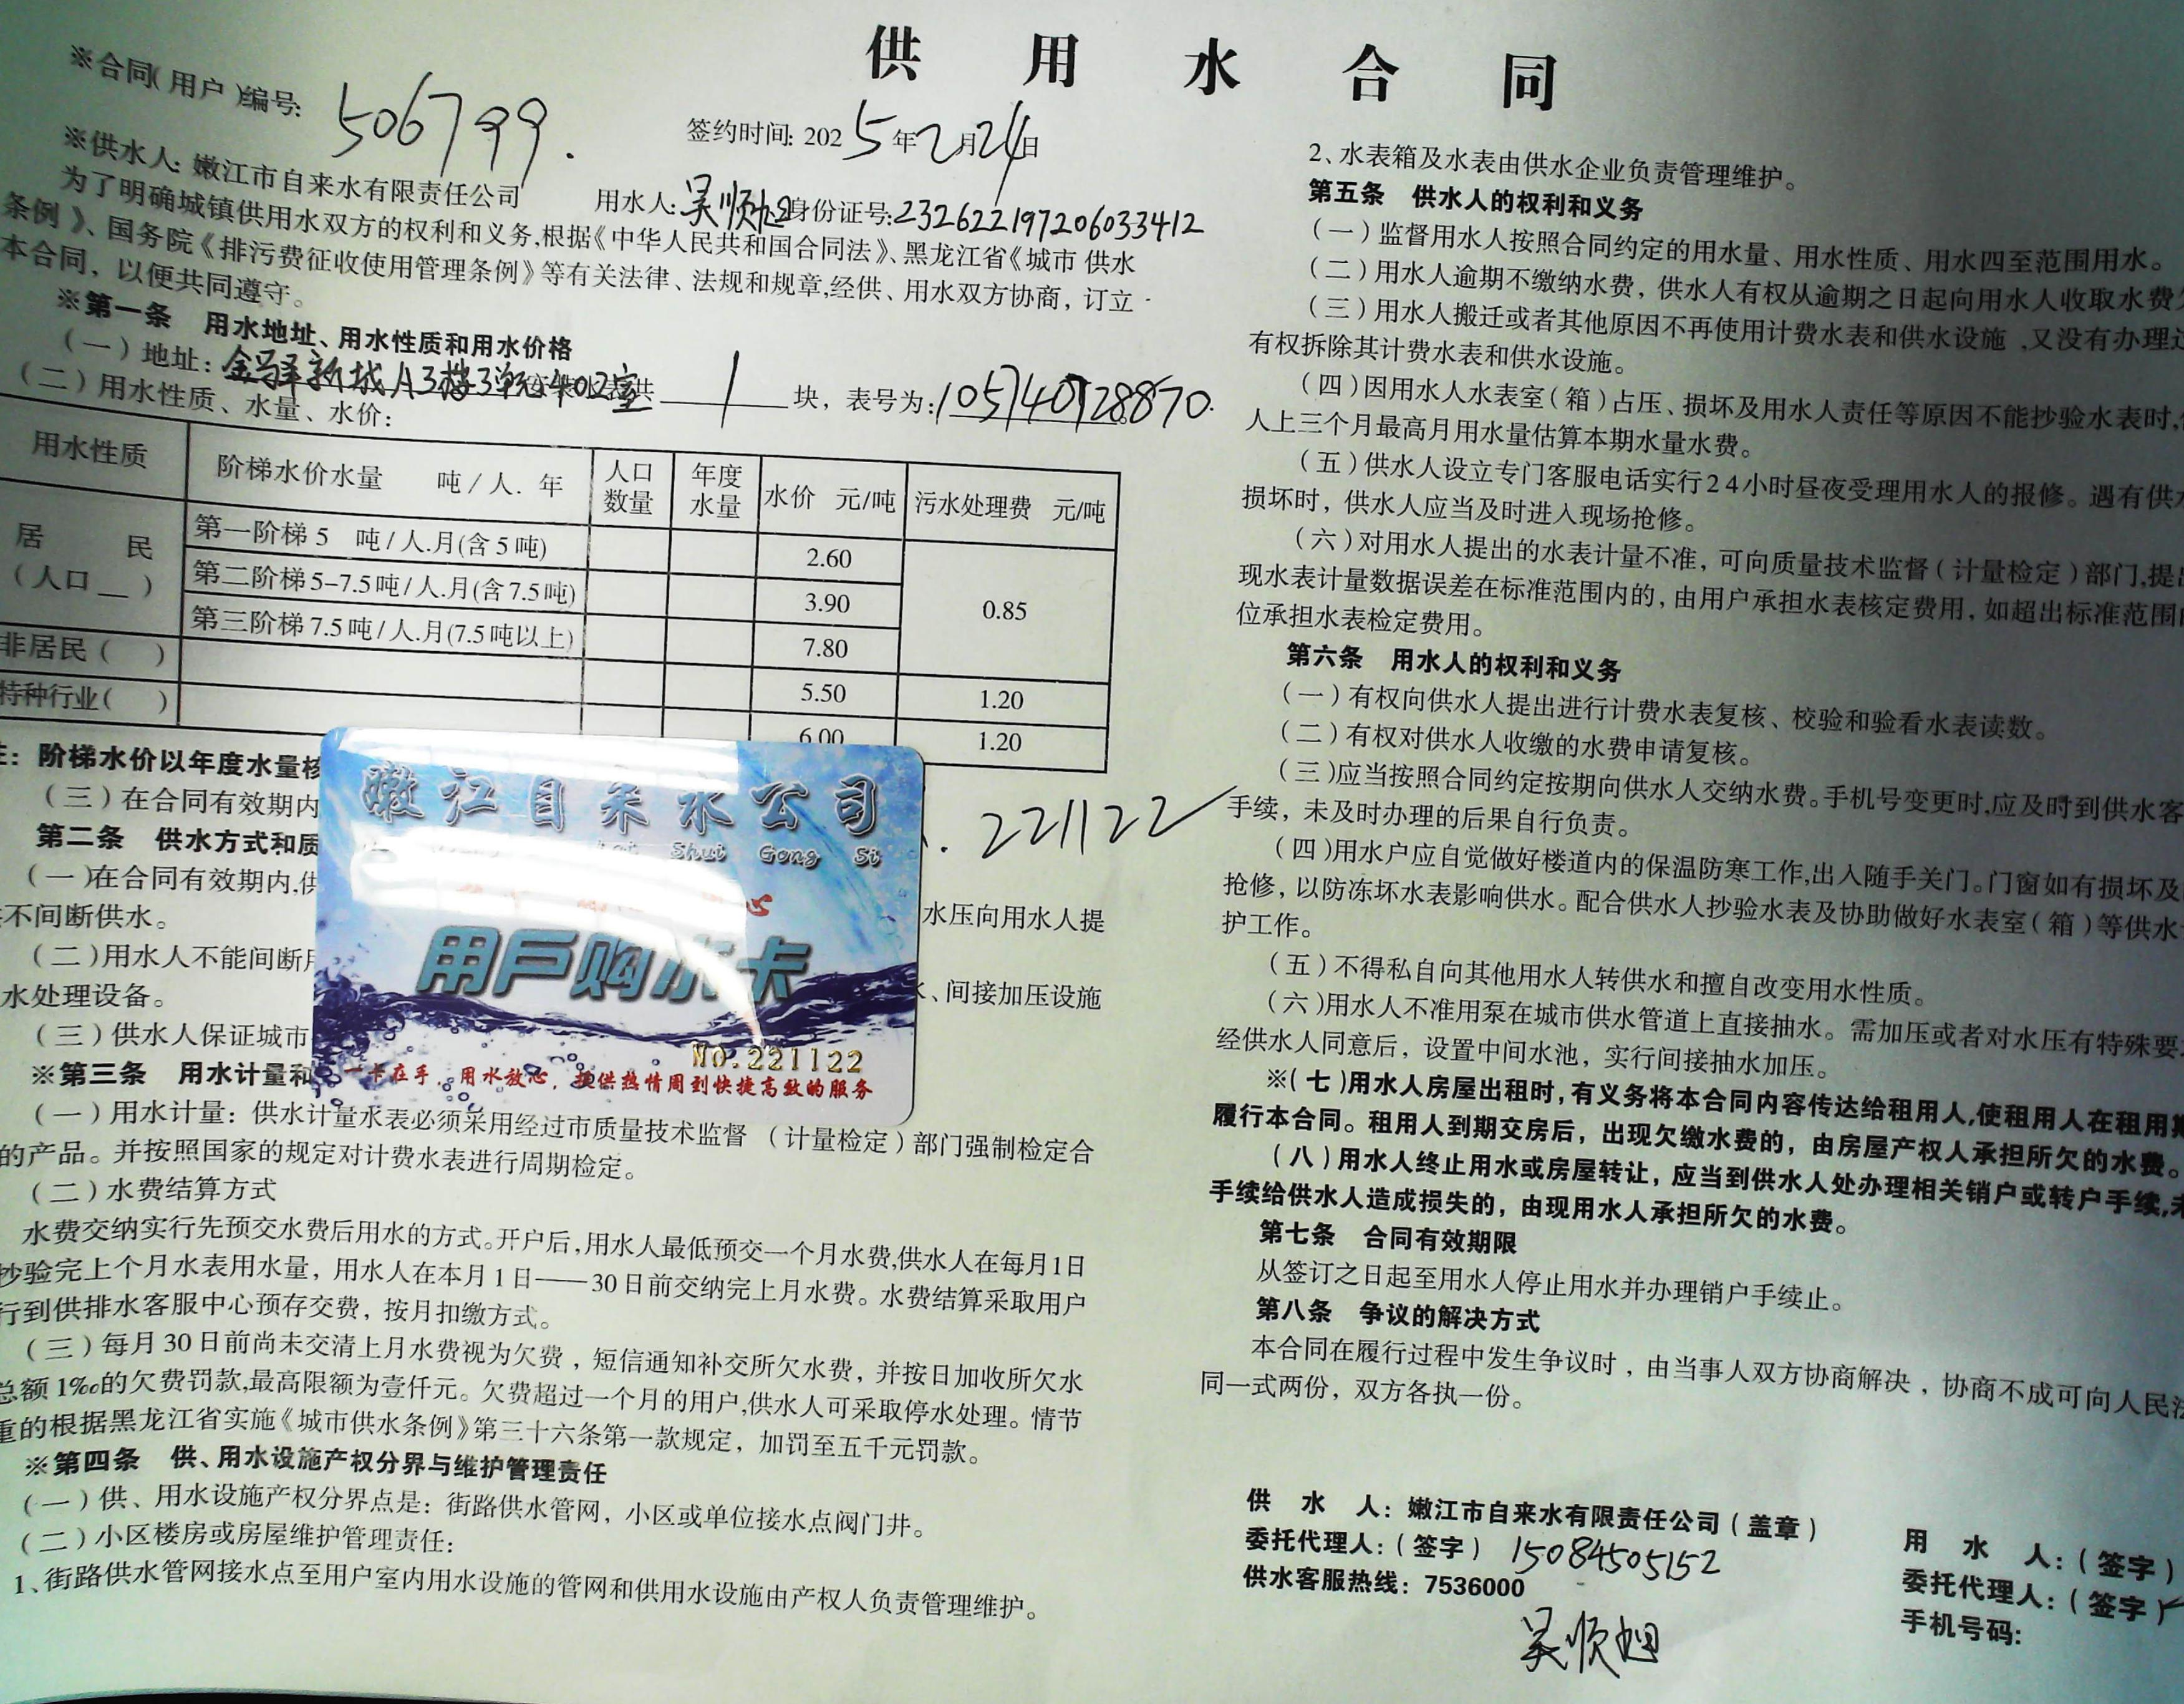 供用水合同
※合同(用户)编号: 506799.
签约时间: 2025年2月24日
※供水人: 嫩江市自来水有限责任公司 用水人: 吴顺旭 身份证号: 232622197206033412
为了明确城镇供用水双方的权利和义务,根据《中华人民共和国合同法》、黑龙江省《城市供水
条例》、国务院《排污费征收使用管理条例》等有关法律、法规和规章,经供、用水双方协商，订立
本合同，以便共同遵守。
※第一条 用水地址、用水性质和用水价格
(一)地址: 金驿新城A3楼3单元402室 共 1 块，表号为:
(二)用水性质、水量、水价:
用水性质 阶梯水价水量 吨/人.年 人口数量 年度水量 水价 元/吨 污水处理费 元/吨
居民(人口__) 第一阶梯5 吨/人.月(含5吨) 2.60 0.85
第二阶梯5-7.5吨/人.月(含7.5吨) 3.90
第三阶梯7.5吨/人.月(7.5吨以上) 7.80
非居民( ) 5.50 1.20
特种行业( ) 6.00 1.20
注: 阶梯水价以年度水量核
(三)在合同有效期内
221122
第二条 供水方式和质
(一)在合同有效期内,供 水压向用水人提
不间断供水。
(二)用水人不能间断用 、间接加压设施
水处理设备。
(三)供水人保证城市
※第三条 用水计量和
嫩江自来水公司
Shui Gong Si
用户购水卡
No.221122
一卡在手，用水放心，提供热情周到快捷高效的服务
(一)用水计量: 供水计量水表必须采用经过市质量技术监督 (计量检定)部门强制检定合
的产品。并按照国家的规定对计费水表进行周期检定。
(二)水费结算方式
水费交纳实行先预交水费后用水的方式。开户后,用水人最低预交一个月水费,供水人在每月1日
抄验完上个月水表用水量，用水人在本月1日——30日前交纳完上月水费。水费结算采取用户
行到供排水客服中心预存交费，按月扣缴方式。
(三)每月30日前尚未交清上月水费视为欠费，短信通知补交所欠水费，并按日加收所欠水
总额1‰的欠费罚款,最高限额为壹仟元。欠费超过一个月的用户,供水人可采取停水处理。情节
重的根据黑龙江省实施《城市供水条例》第三十六条第一款规定，加罚至五千元罚款。
※第四条 供、用水设施产权分界与维护管理责任
(一)供、用水设施产权分界点是: 街路供水管网，小区或单位接水点阀门井。
(二)小区楼房或房屋维护管理责任:
1、街路供水管网接水点至用户室内用水设施的管网和供用水设施由产权人负责管理维护。
2、水表箱及水表由供水企业负责管理维护。
第五条 供水人的权利和义务
(一)监督用水人按照合同约定的用水量、用水性质、用水四至范围用水。
(二)用水人逾期不缴纳水费，供水人有权从逾期之日起向用水人收取水费
(三)用水人搬迁或者其他原因不再使用计费水表和供水设施,又没有办理
有权拆除其计费水表和供水设施。
(四)因用水人水表室(箱)占压、损坏及用水人责任等原因不能抄验水表时,
人上三个月最高月用水量估算本期水量水费。
(五)供水人设立专门客服电话实行24小时昼夜受理用水人的报修。遇有供水
损坏时，供水人应当及时进入现场抢修。
(六)对用水人提出的水表计量不准，可向质量技术监督(计量检定)部门,提出
现水表计量数据误差在标准范围内的，由用户承担水表核定费用，如超出标准范围
位承担水表检定费用。
第六条 用水人的权利和义务
(一)有权向供水人提出进行计费水表复核、校验和验看水表读数。
(二)有权对供水人收缴的水费申请复核。
(三)应当按照合同约定按期向供水人交纳水费。手机号变更时,应及时到供水客
手续，未及时办理的后果自行负责。
(四)用水户应自觉做好楼道内的保温防寒工作,出入随手关门。门窗如有损坏及
抢修，以防冻坏水表影响供水。配合供水人抄验水表及协助做好水表室(箱)等供水
护工作。
(五)不得私自向其他用水人转供水和擅自改变用水性质。
(六)用水人不准用泵在城市供水管道上直接抽水。需加压或者对水压有特殊要
经供水人同意后，设置中间水池，实行间接抽水加压。
※(七)用水人房屋出租时,有义务将本合同内容传达给租用人,使租用人在租用期
履行本合同。租用人到期交房后，出现欠缴水费的，由房屋产权人承担所欠的水费。
(八)用水人终止用水或房屋转让，应当到供水人处办理相关销户或转户手续,未
手续给供水人造成损失的，由现用水人承担所欠的水费。
第七条 合同有效期限
从签订之日起至用水人停止用水并办理销户手续止。
第八条 争议的解决方式
本合同在履行过程中发生争议时，由当事人双方协商解决，协商不成可向人民法
同一式两份，双方各执一份。
供 水 人: 嫩江市自来水有限责任公司(盖章)
委托代理人:(签字) 15084505152
供水客服热线: 7536000
吴顺旭
用 水 人:(签字)
委托代理人:(签字)
手机号码: